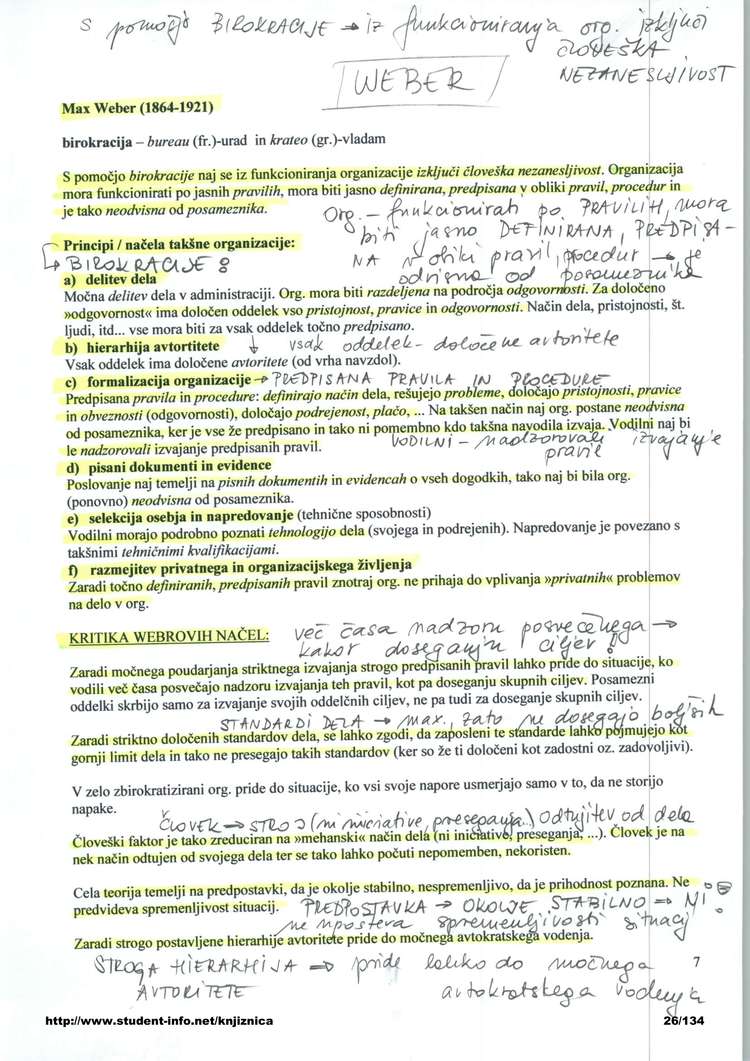 S pomočjo BIROKRACIJE → iz funkcioniranja org. izključi
ČLOVEŠKA
NEZANESLJIVOST
WEBER
Max Weber (1864-1921)
birokracija – bureau (fr.)-urad in krateo (gr.)-vladam
S pomočjo birokracije naj se iz funkcioniranja organizacije izključi človeška nezanesljivost. Organizacija
mora funkcionirati po jasnih pravilih, mora biti jasno definirana, predpisana v obliki pravil, procedur in
je tako neodvisna od posameznika.
Org. – funkcionirati po PRAVILIH, mora
biti jasno DEFINIRANA, PREDPISA-
NA v obliki pravil, procedur → je
odvisna od posameznika
Principi / načela takšne organizacije:
↳ BIROKRACIJE :
a) delitev dela
Močna delitev dela v administraciji. Org. mora biti razdeljena na področja odgovornosti. Za določeno
»odgovornost« ima določen oddelek vso pristojnost, pravice in odgovornosti. Način dela, pristojnosti, št.
ljudi, itd... vse mora biti za vsak oddelek točno predpisano.
b) hierarhija avtortitete ↓ vsak oddelek - določene avtoritete
Vsak oddelek ima določene avtoritete (od vrha navzdol).
c) formalizacija organizacije → PREDPISANA PRAVILA IN PROCEDURE
Predpisana pravila in procedure: definirajo način dela, rešujejo probleme, določajo pristojnosti, pravice
in obveznosti (odgovornosti), določajo podrejenost, plačo, ... Na takšen način naj org. postane neodvisna
od posameznika, ker je vse že predpisano in tako ni pomembno kdo takšna navodila izvaja. Vodilni naj bi
le nadzorovali izvajanje predpisanih pravil.
VODILNI – nadzorovali izvajanje
pravil
d) pisani dokumenti in evidence
Poslovanje naj temelji na pisnih dokumentih in evidencah o vseh dogodkih, tako naj bi bila org.
(ponovno) neodvisna od posameznika.
e) selekcija osebja in napredovanje (tehnične sposobnosti)
Vodilni morajo podrobno poznati tehnologijo dela (svojega in podrejenih). Napredovanje je povezano s
takšnimi tehničnimi kvalifikacijami.
f) razmejitev privatnega in organizacijskega življenja
Zaradi točno definiranih, predpisanih pravil znotraj org. ne prihaja do vplivanja »privatnih« problemov
na delo v org.
KRITIKA WEBROVIH NAČEL: več časa nadzoru posvečenega →
kakor doseganju ciljev !
Zaradi močnega poudarjanja striktnega izvajanja strogo predpisanih pravil lahko pride do situacije, ko
vodili več časa posvečajo nadzoru izvajanja teh pravil, kot pa doseganju skupnih ciljev. Posamezni
oddelki skrbijo samo za izvajanje svojih oddelčnih ciljev, ne pa tudi za doseganje skupnih ciljev.
STANDARDI DELA → max., zato ne dosegajo boljših
Zaradi striktno določenih standardov dela, se lahko zgodi, da zaposleni te standarde lahko pojmujejo kot
gornji limit dela in tako ne presegajo takih standardov (ker so že ti določeni kot zadostni oz. zadovoljivi).
V zelo zbirokratizirani org. pride do situacije, ko vsi svoje napore usmerjajo samo v to, da ne storijo
napake.
ČLOVEK → STROJ (ni iniciative, preseganja..) Odtujitev od dela
Človeški faktor je tako zreduciran na »mehanski« način dela (ni iniciative, preseganja, ...). Človek je na
nek način odtujen od svojega dela ter se tako lahko počuti nepomemben, nekoristen.
Cela teorija temelji na predpostavki, da je okolje stabilno, nespremenljivo, da je prihodnost poznana. Ne
predvideva spremenljivost situacij. PREDPOSTAVKA → OKOLJE STABILNO → NI!
ne upošteva spremenljivosti situacij
Zaradi strogo postavljene hierarhije avtoritete pride do močnega avtokratskega vodenja.
STROGA HIERARHIJA → pride lahko do močnega
AVTORITETE avtokratskega vodenja
7
http://www.student-info.net/knjiznica 26/134